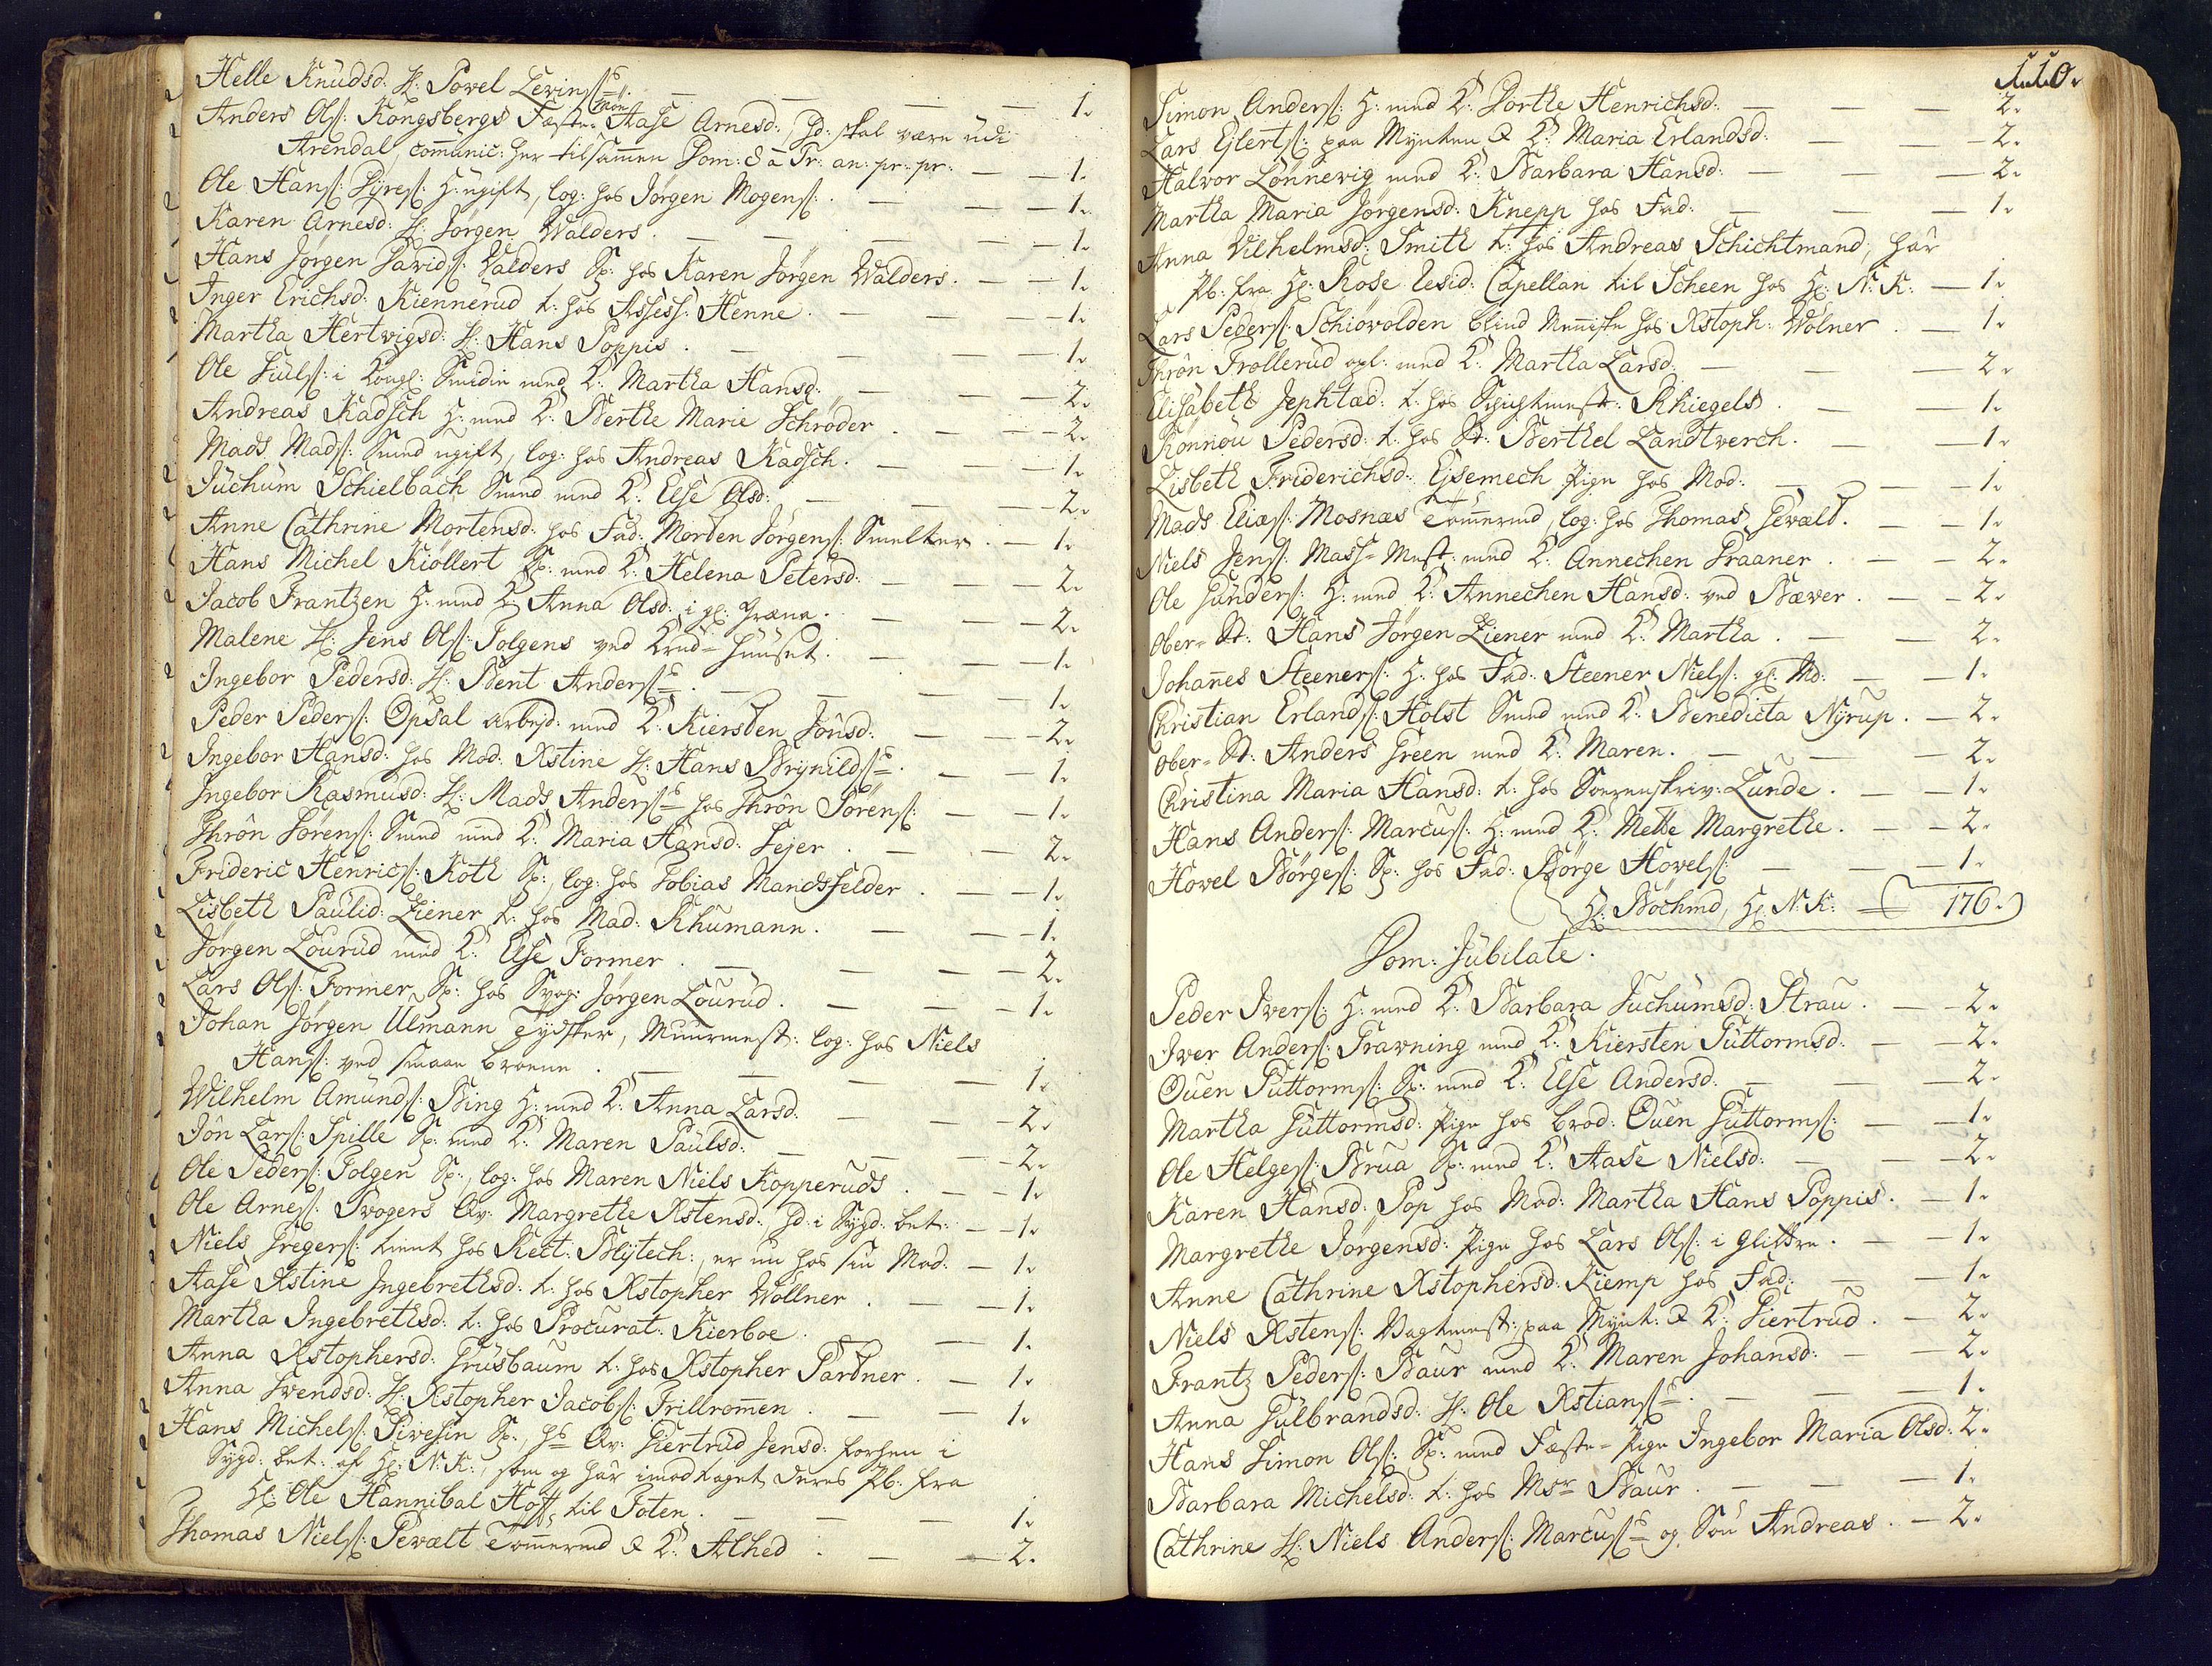 Helle Knudsd: H: Povel Levins: — 1.
Anders Ols: Kongsbergs Fæste-Møe Aase Arnesd: sd: skal være udi
Arendal, comunic: her tilsamen Dom: 8 a Tr: an: pr: pr: — 1.
Ole Hans: Dyres: H: ugift, log: hos Jørgen Mogens: — 1.
Karen Arnesd: H: Jørgen Walders. — 1.
Hans Jørgen Davids: Valders Sp: hos Karen Jørgen Walders. — 1.
Inger Erichsd: Kiennerud t: hos Assess: Henne. — 1.
Martha Hertvigsd: H: Hans Poppis. — 1.
Ole Juuls: i Kongl: Smidie med K: Martha Hansd: — 2.
Andreas Kadsch H: med K: Berthe Marie Schrøder. — 2.
Mads Mads: Smed ugift, log: hos Andreas Kadsch. — 1.
Juchum Schielbach Smed med K: Else Olsd: — 2.
Anne Cathrine Mortensd: hos Fad: Morden Jørgens: Smelter. — 1.
Hans Michel Kiøllert Sp: med K: Helena Petersd: — 2.
Jacob Frantzen H: med K: Anna Olsd: i gl: Grane. — 2.
Malene H: Jens Ols: Folgens ved Krud-Huuset. — 1.
Ingebor Pedersd: H: Bent Anders: — 1.
Peder Peders: Opsal arbejd: med K: Kiersten Jonsd: — 2.
Ingebor Hansd: hos Mod: Xstine H: Hans Brynilds: — 1.
Ingebor Rasmusd: H: Mads Anders: hos Thron Sørens: — 1.
Thron Sørens: Smed med K: Maria Hansd: Fejer. — 2.
Frideric Henrics: Koth Sp:, log: hos Tobias Mandsfelder. — 1.
Lisbeth Paulid: Ziener t: hos Mad: Rhumann. — 1.
Jørgen Lourud med K: Else Former. — 2.
Lars Ols: Former Sp: hos Svog: Jørgen Lourud. — 1.
Johan Jørgen Ulmann Tydsker, Muurmest: log: hos Niels
Hans: ved smaae broene. — 1.
Wilhelm Amunds: Bing H: med K: Anna Larsd. — 2.
Jon Lars: Spille Sp: med K: Maren Paulsd: — 2.
Ole Peders: Folgen Sp:, log: hos Maren Niels Kopperuds. — 1.
Ole Arnes: Svogers Qv: Margrethe Xstensd: sd: i Sygd: bet: — 1.
Niels Gregers: tient hos Rect: Blytech:, er nu hos sin Mod: — 1.
Aase Xstine Ingebrethsd: t: hos Xstopher Wøllner. — 1.
Martha Ingebrethsd: t: hos Procurat: Kierboe. — 1.
Anna Xstophersd: Grusbaum t: hos Xstopher Pardner. — 1.
Anna Svendsd: H: Xstopher Jacobs: Frillromen. — 1.
Hans Michels: Sivesin Sp:, hs Qv: Giertrud Jensd: forhen i
Sygd: bet: af H: N: K:, som og har imodtaget deres Pb: fra
H: Ole Hannibal Hoff til Toten. — 1.
Thomas Niels: Gevælt Tømermd & K: Alhed. — 2.
110.
Simon Anders: H: med K: Dorthe Henrichsd: — 2.
Lars Ejlerts: paa Mynten & K: Maria Erlandsd: — 2.
Halvor Lønnevig med K: Barbara Hansd: — 2.
Martha Maria Jørgensd: Knepp hos Fad: — 1.
Anna Vilhelmsd: Smith t: hos Andreas Schichtmand, har
Pb: fra H: Rose resid: Capellan til Scheen hos H: N: K: — 1.
Lars Peders: Schiøvolden blind Meniske hos Xstoph: Wølner. — 1.
Thron Trollerud opl: med K: Martha Larsd: — 2.
Elisabeth Jephtæd: t: hos Schichtmest: Rhiegels. — 1.
Rønnou Pedersd: t: hos St: Berthel Landtverch. — 1.
Lisbeth Friderichsd: Ejsemech Pige hos Mod: — 1.
Mads Elias: Mosnæs Tømermd, log: hos Thomas Gevælt. — 1.
Niels Jens: Mass-Mest: med K: Annechen Praaner. — 2.
Ole Gunders: H: med K: Annechen Hansd: ved Bæver. — 2.
Ober-St: Hans Jørgen Ziener med K: Martha. — 2.
Johannes Steeners: H: hos Fad: Steener Niels: gl: Md: — 1.
Christian Erlands: Holst Smed med K: Benedicta Nyrup. — 2.
Ober-St: Anders Green med K: Maren. — 2.
Christina Maria Hansd: t: hos Sorenskriv: Lunde. — 1.
Hans Anders: Marcus: H: med K: Mette Margrethe. — 2.
Hovel Børges: Sp: hos Fad: Børge Hovels: — 1.
H: Bøchmd, H: N: K: — 176.
Dom: Jubilate.
Peder Ivers: H: med K: Barbara Juchumsd: Strau. — 2.
Iver Anders: Travning med K: Kiersten Guttormsd: — 2.
Ouen Guttorms: Sp: med K: Else Andersd. — 2.
Martha Guttormsd: Pige hos brod: Ouen Guttorms: — 1.
Ole Helges: Brua Sp: med K: Aase Nielsd: — 2.
Karen Hansd: Pop hos Mod: Martha Hans Poppis. — 1.
Margrethe Jørgensd: Pige hos Lars Ols: i Glittre. — 1.
Anne Cathrine Xstophersd: Kiemp hos Fad: — 1.
Niels Xstens: Vagtmest: paa Mynt: & K: Giertrud. — 2.
Frantz Peders: Baur med K: Maren Johansd: — 2.
Anna Gulbrandsd: H: Ole Xstians: — 1.
Hans Simon Ols: Sp: med Fæste-Pige Ingebor Maria Olsd: 2.
Barbara Michelsd: t: hos Msr Baur. — 1.
Cathrine H: Niels Anders: Marcus: og Søn Andreas. — 2.